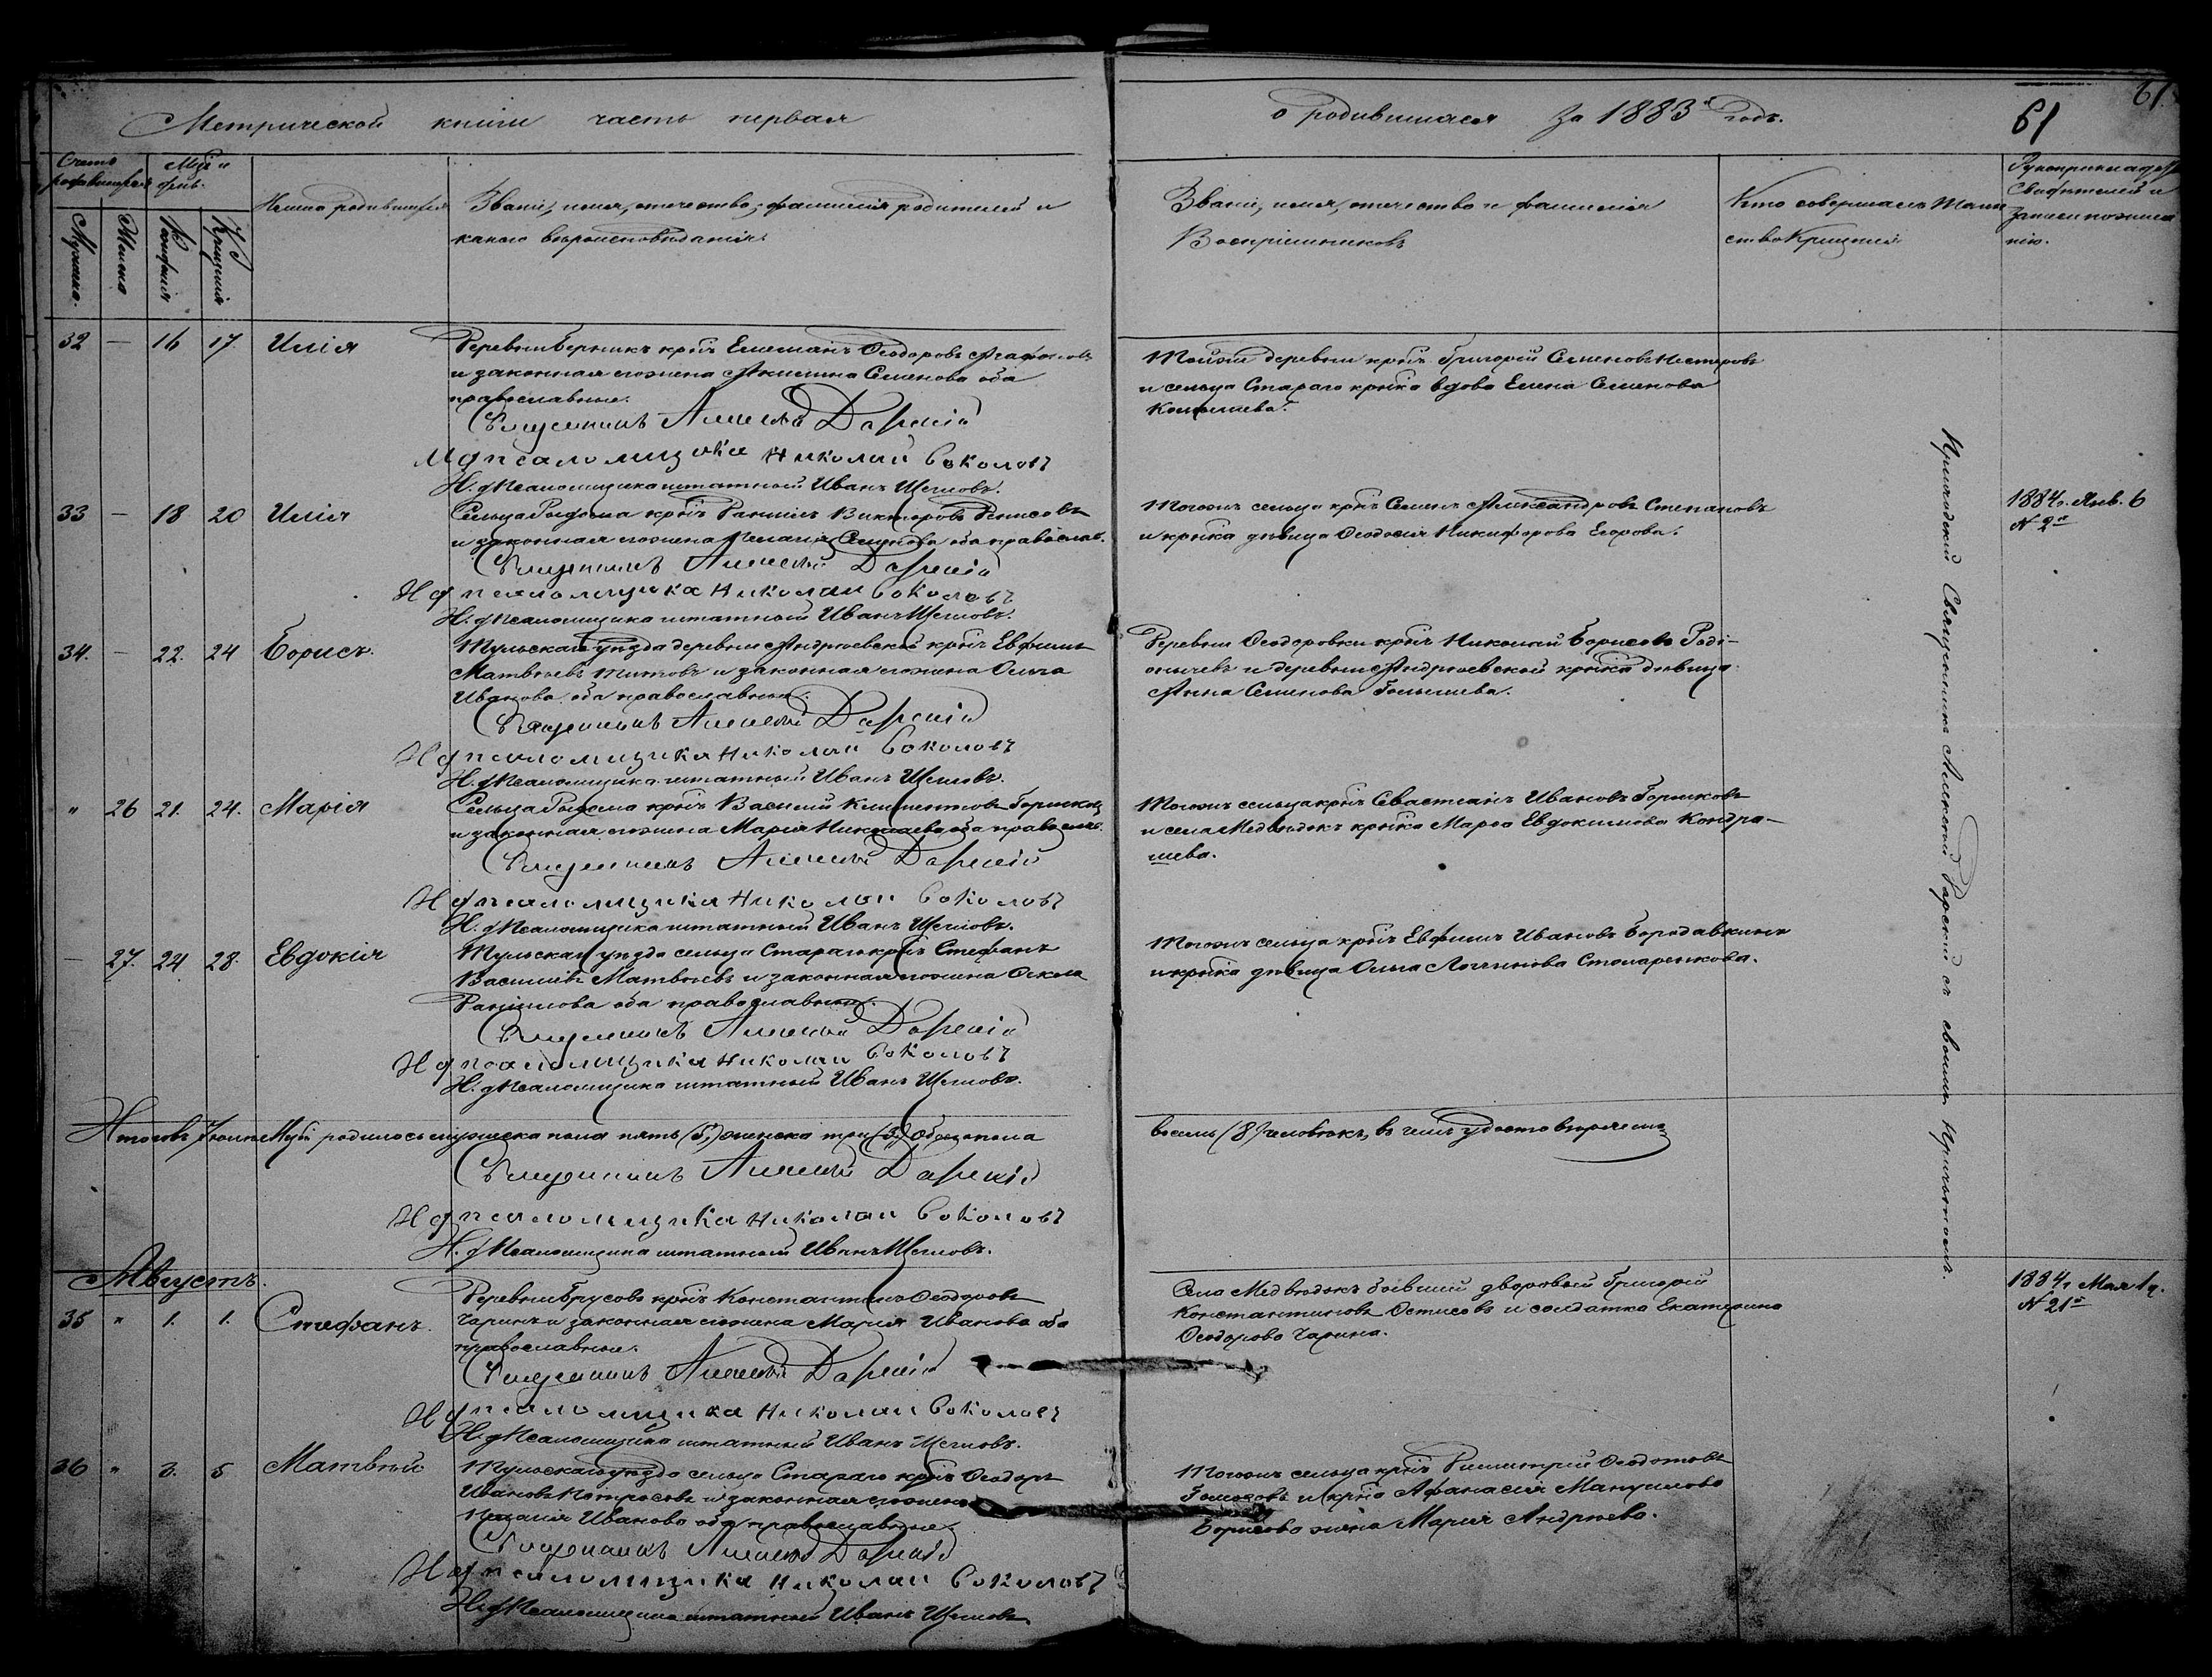 Метрической книги часть первая
о родившихся за 1883й годъ.
61
61
Счетъ родившихся
Мѣс. и день.
Мужска.
Женска
Рожденія
Крещенія
Имена родившихся
Званіе, имя, отчество, фамилія родителей и
какого вѣроисповѣданія.
Званіе, имя, отчество и фамилія
Воспріемниковъ
Кто совершалъ Таин
ство Крещенія
Рукоприкладст
Свидѣтелей
записи по жела
нію.
32 — 16 17. Илія
Деревни крнъ Емеліанъ Ѳеодоровъ Агафоновъ
и законная его жена Акилина Семенова оба
православные.
Священникъ Алексѣй Дарскій
И д псаломщика Николай Соколовъ
И. д. Псаломщика штатный Иванъ Щегловъ.
Тойже деревни крнъ Григорій Семеновъ Нестеровъ
и сельца Стараго крнка вдова Елена Семенова
33 — 18 20 Илія
Сельца крнъ Даніилъ Викторовъ Денисовъ
и законная его жена Пелагія оба православ.
Священникъ Алексѣй Дарскій
И д псаломщика Николай Соколовъ
И. д. Псаломщика штатный Иванъ Щегловъ.
Тогожъ сельца крнъ Семенъ Александровъ Степановъ
и крнка дѣвица Ѳеодосія Никифорова Егорова.
1884г. Янв. 6
№ 2й
34. — 22. 24 Борисъ.
Тульскаго уѣзда деревни Андреевской крнъ Евфимъ
Матвѣевъ Титовъ и законная его жена Ольга
Иванова оба православные.
Священникъ Алексѣй Дарскій
И д псаломщика Николай Соколовъ
И. д. Псаломщика штатный Иванъ Щегловъ.
Деревни Ѳеодоровки крнъ Николай Борисовъ Роді-
онычевъ и деревни Андреевской крнка дѣвица
Анна Семенова
" 26 21. 24. Марія
Сельца крнъ Василій Климентовъ
и законная его жена Марія Николаева оба православ.
Священникъ Алексѣй Дарскій
И д псаломщика Николай Соколовъ
И. д. Псаломщика штатный Иванъ Щегловъ.
Тогожъ сельца крнъ Севастіанъ Ивановъ Горшковъ
и села Медвѣдокъ крнка Марѳа Евдокимова Кондра-
шева.
— 27. 24 28. Евдокія
Тульскаго уѣзда сельца Стараго крнъ Стефанъ
Василіевъ Матвѣевъ и законная его жена Ѳекла
Даніилова оба православные.
Священникъ Алексѣй Дарскій
И д псаломщика Николай Соколовъ
И. д. Псаломщика штатный Иванъ Щегловъ.
Тогожъ сельца крнъ Евфимъ Ивановъ Бородавкинъ
и крнка дѣвица Ольга Логинова Столяренкова.
Приходскій Священникъ Алексѣй Дарскій съ своимъ причтомъ.
Итого въ Іюлѣ Мцѣ родилось мужеска пола пять (5,) женска три (3) обоего пола
восемь (8) человѣкъ, въ чемъ удостовѣряемъ
Священникъ Алексѣй Дарскій
И д псаломщика Николай Соколовъ
И. д. Псаломщика штатный Иванъ Щегловъ.
Августъ.
35 " 1. 1. Стефанъ.
Деревни Брусовъ крнъ Константинъ Ѳеодоровъ
Чаринъ и законная его жена Марія Иванова оба
православные.
Священникъ Алексѣй Дарскій
И д псаломщика Николай Соколовъ
И. д. Псаломщика штатный Иванъ Щегловъ.
Села Медвѣдокъ бывшій дворовый Григорій
Константиновъ и солдатка Екатерина
Ѳеодорова Чарина.
1884г. Мая
№ 21й
36 " 3. 5 Матвѣй
Тульскаго уѣзда сельца Стараго крнъ Ѳеодоръ
Ивановъ и законная его жена
Иванова оба православные.
Священникъ Алексѣй Дарскій
И д псаломщика Николай Соколовъ
И. д. Псаломщика штатный Иванъ Щегловъ
Тогожъ сельца крнъ Димитрій Ѳеодотовъ
и крнна Афанасія Мануилова
Борисова жена Марія Андреева.